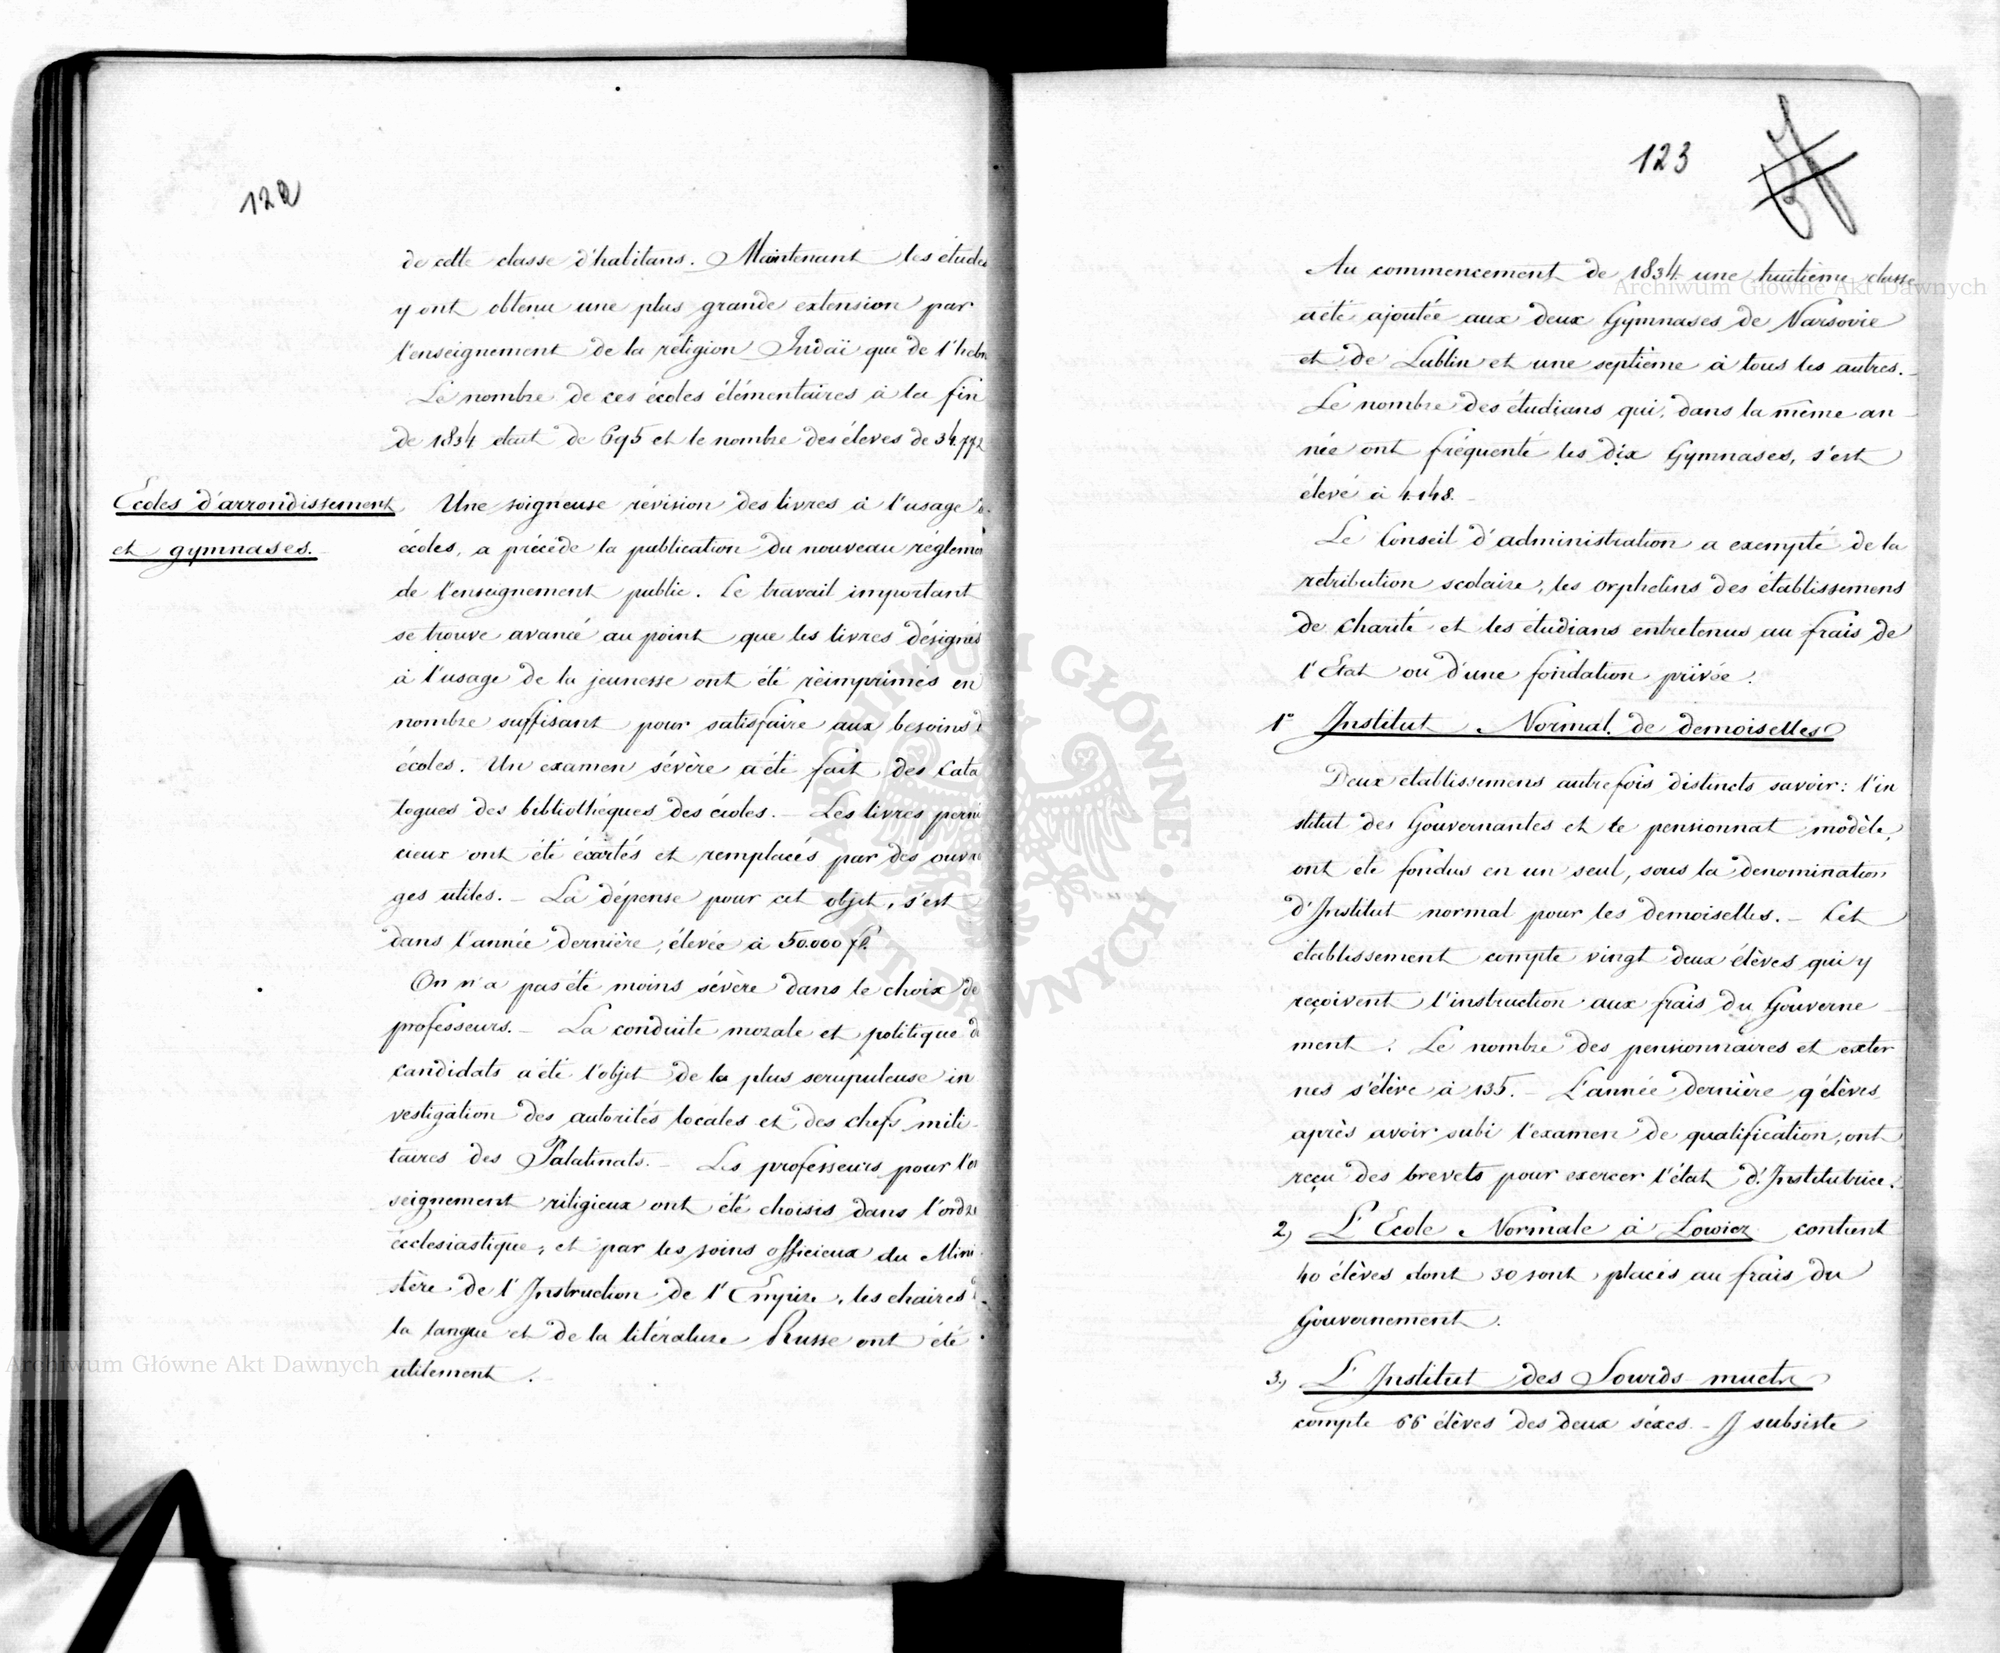 122
de cette classe d'habitans. Maintenant les études
y ont obtenu une plus grande extension par
l'enseignement de la réligion Judaï que de l'hebr
Le nombre de ces écoles élémentaires à la fin
de 1834 était de 695 et le nombre des éleves de 34.772
Ecoles d'arrondissement
et gymnases.
Une soigneuse révision des livres à l'usage d
écoles, a précédé la publication du nouveau réglemen
de l'enseignement public. Ce travail important
se trouve avancé au point que les livres désignés
à l'usage de la jeunesse ont été réimprimés en
nombre suffisant pour satisfaire aux besoins d
écoles. Un examen sévère a été fait des Cata
logues des bibliothéques des écoles. – Les livres perni
cieux ont été écartés et remplacés par des ouvra
ges utiles. – La dépense pour cet objet, s'est
dans l'année dernière, élevée à 50.000 fl.
On n'a pas été moins sévère dans le choix de
professeurs. – La conduite morale et politique d
candidats a été l'objet de la plus scrupuleuse in
vestigation des autorités locales et des chefs mili-
taires des Palatinats. – Les professeurs pour l'en
seignement réligieux ont été choisis dans l'ordre
écclesiastique, et par les soins officieux du Mini
stère de l'Instruction de l'Empire, les chaires d
la langue et de la litérature Russe ont été
utilement.
123
Au commencement de 1834 une huitième classe
a été ajoutée aux deux Gymnases de Varsovie
et de Lublin et une septième à tous les autres. –
Le nombre des étudians qui, dans la même an-
née ont fréquenté les dix Gymnases, s'est
élevé à 4.148. –
Le Conseil d'administration a exempté de la
retribution scolaire, les orphelins des établissemens
de charité et les étudians entretenus au frais de
l'Etat ou d'une fondation privée.
1° Institut Normal de demoiselles
Deux etablissemens autrefois distincts savoir: l'in
stitut des Gouvernantes et le pensionnat modèle,
ont ete fondus en un seul, sous la denomination
d'Institut normal pour les demoiselles. – Cet
établissement compte vingt deux élèves qui y
reçoivent l'instruction aux frais du Gouverne –
ment. Le nombre des pensionnaires et exter
nes s'élève à 135. – L'année dernière 9 élèves
après avoir subi l'examen de qualification, ont
reçu des brevets pour exercer l'état d'Institutrice.
2) L'Ecole Normale à Lowicz contient
40 élèves dont 30 sont placés au frais du
Gouvernement.
3) L'Institut des Sourds-muets
compte 66 élèves des deux séxes. – Il subsiste
Archiwum Główne Akt Dawnych
Archiwum Główne Akt Dawnych
ARCHIWUM GŁÓWNE AKT DAWNYCH